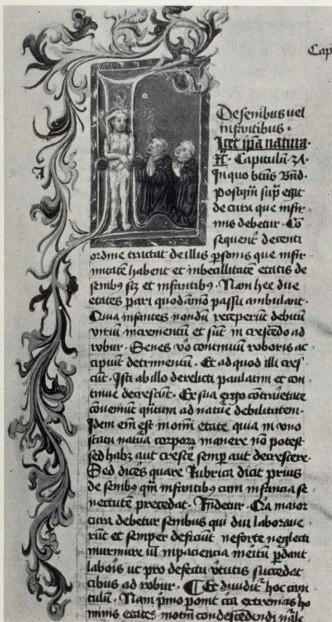 Cap
De senibus vel
infantibus.
Licet ip̄a natura
Capitulū 37
In quo btūs Bn̄d.
Postqm̄ sup̄ egit
de cura que infir
mis debetur. Co
sequent̄ decenti
ordine tractat de illis p̄sonis que infir
mitatē habent et inbecillitatē etatis de
senib⁹ scz et infantib⁹. Non hee due
etates pari quodāmō passu ambulant.
Quia infantes nondū receperūt debitū
viriū incrementū et sūt in crescēdo ad
robur. Senes vo roboris ac
detrimentū. Et ad quod illi cres
cūt. Isti ab illo derelicti paulatim et con
tinue decrescūt. Ex sua ergo
conveniūt qn̄tum ad natiue debilitatem.
Idem em̄ est in om̄i etate quia in vno
statu natiua corpora manere nō potest
sed habz aut crescē semp̄ aut decrescere.
Sed dices quare Rubrica dicit prius
de senib⁹ qm̄ infantib⁹ cum infancia se
nectutē precedat. Videtur. Qa maior
cura debetur senibus qui diu laboraue
rūt et semper deficiūt ne forte neglecti
murmure vl̄ inpaciencia p̄dant
laboris ut pro defectu succedat
cibus ad robur. Et diuidit᷑ hoc cap̄
tulū. Nam pmo ponit extremas ho
minis etates condescendi